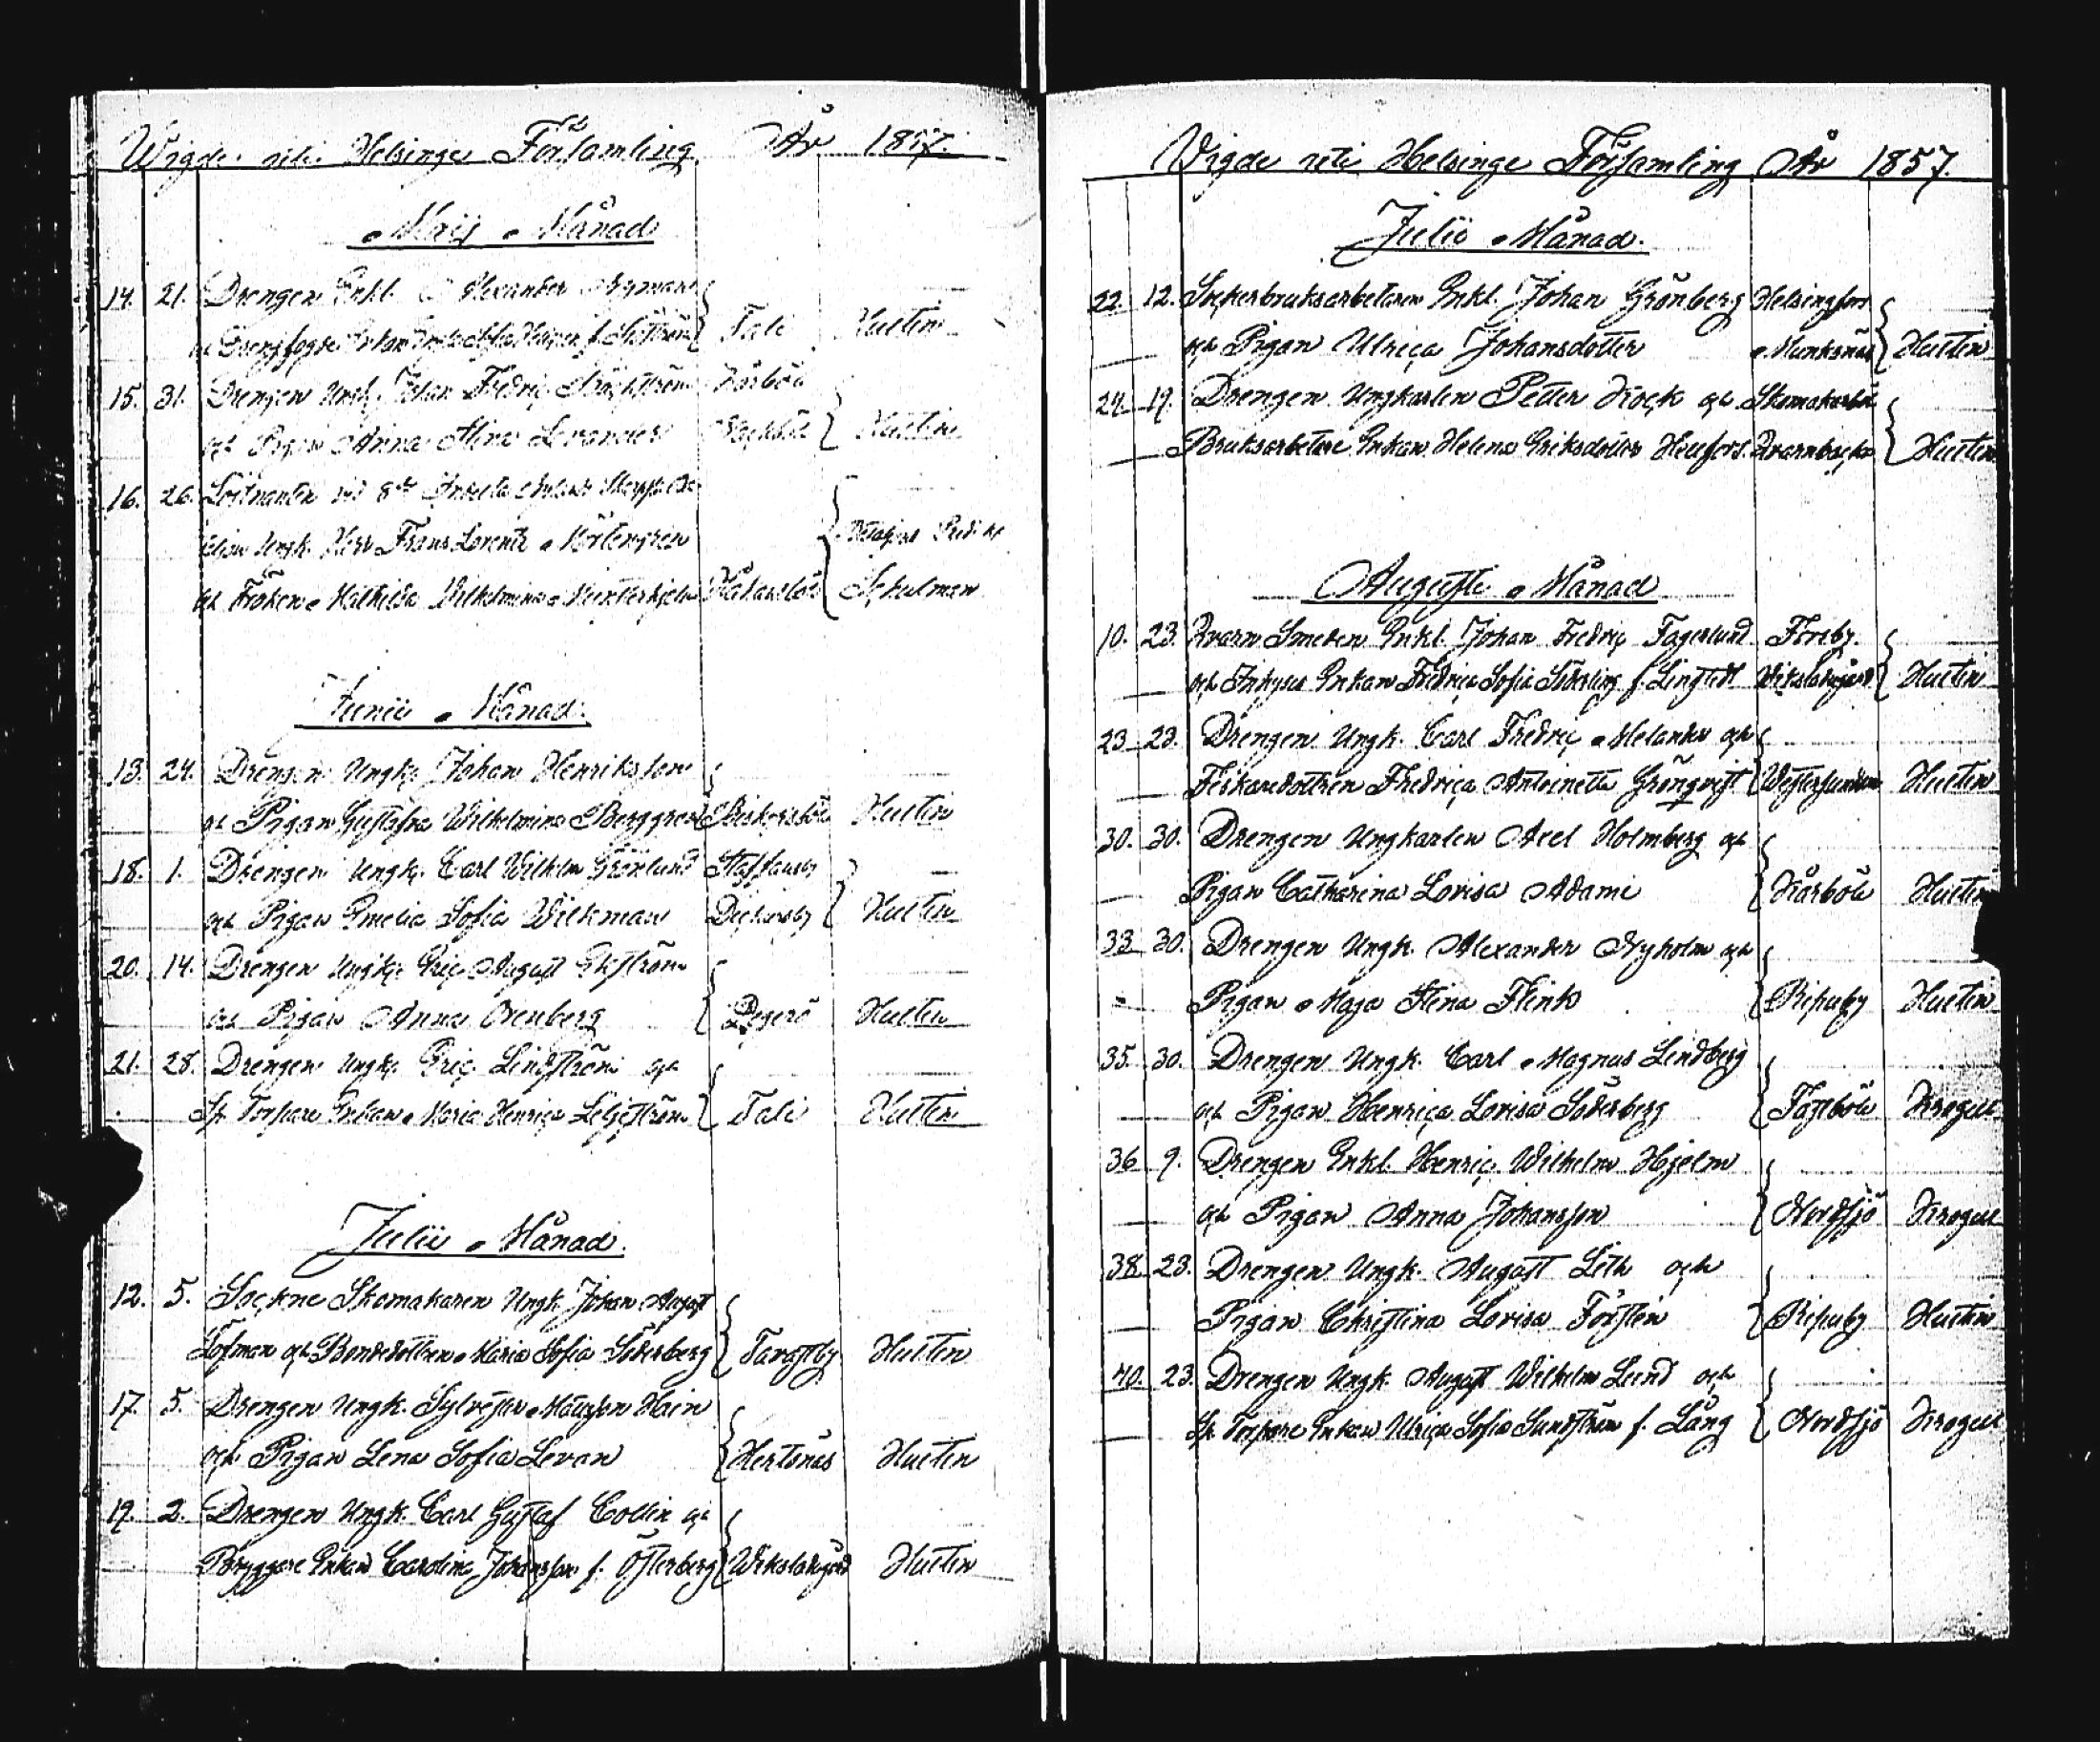 Wigde uti Helsinge Församling År 1857.
Maij Månad
14. 21. Drengen Enkl. Alexander Nyman
Tali Hultin
15. 31. Drengen Ungk. Johan Fredric
och Pigan Anna Stina Levander Hultin
16. 26. Löitnanten vid 8de
Ungk. Herr Frans Lorentz Mörtengren
och Fröken Mathilda Wilhelmina Munsterhjelm Schulman
Junii Månad.
13. 24. Drengen Ungk. Johan Henriksson
och Pigan Gustafva Wilhelmina Berggren Biskopsböle Hultin
18. 1. Drengen Ungk. Carl Wilhelm Grönlund Staffansby
och Pigan Emelia Sofia Wickman Dickursby Hultin
20. 14. Drengen Ungk. Eric August Ekström
och Pigan Anna Orenberg Degerö Hultin
21. 28. Drengen Ungk. Eric Lindström och
Sp. Torpare Enkan Maria Henrica Liljeström Tali Hultin
Julii Månad.
12. 5. Sockne Skomakaren Ungk. Johan August
Löfman och Bondedottren Maria Sofia Söderberg Tavastby Hultin
17. 5. Drengen Ungk. Sylvester Mårtsson Hain
och Pigan Lena Sofia Levan Hertonäs Hultin
19. 2. Drengen Ungk. Carl Gustaf Collin och
Bryggare Enkan Carolina Johansson f. Österberg Wikslakgård Hultin
Vigde uti Helsinge Församling År 1857.
Julii Månad.
22. 12. Sockerbruksarbetaren Enkl. Johan Grönberg Helsingfors
och Pigan Ulrica Johansdotter Munksnäs Hultin
24. 19. Drengen Ungkarlen Petter Kock och Skomakarböle
Bruksarbetare Enkan Helena Eriksdotter Heufors Qvarnbacka Hultin
Augusti Månad
10. 23. Qvarn Smeden Enkl. Johan Fredric Fagerlund Forsby.
och Inhyses Enkan Fredrica Sofia Söderling f. Lingstedt Wikslakgård Hultin
23. 23. Drengen Ungk. Carl Fredric Melander och
Fiskaredottren Fredrica Antoinetta Grönqvist Westersundom Hultin
30. 30. Drengen Ungkarlen Axel Holmberg och
Pigan Catharina Lovisa Adami Kårböle Hultin
33. 30. Drengen Ungk. Alexander Nyholm och
Pigan Maja Stina Flink Ripuby Hultin
35. 30. Drengen Ungk. Carl Magnus Lindberg
och Pigan Henrica Lovisa Söderberg Fastböle Krogell
36. 9. Drengen Enkl. Henric Wilhelm Hjelm
och Pigan Anna Johansson Nordsjö Krogell
38. 23. Drengen Ungk. August Lith och
Pigan Christina Lovisa Forsten Ripuby Hultin
40. 23. Drengen Ungk. August Wilhelm Lund och
Sp. Torpare Enkan Ulrica Sofia Sundström f. Lång Nordsjö Krogell